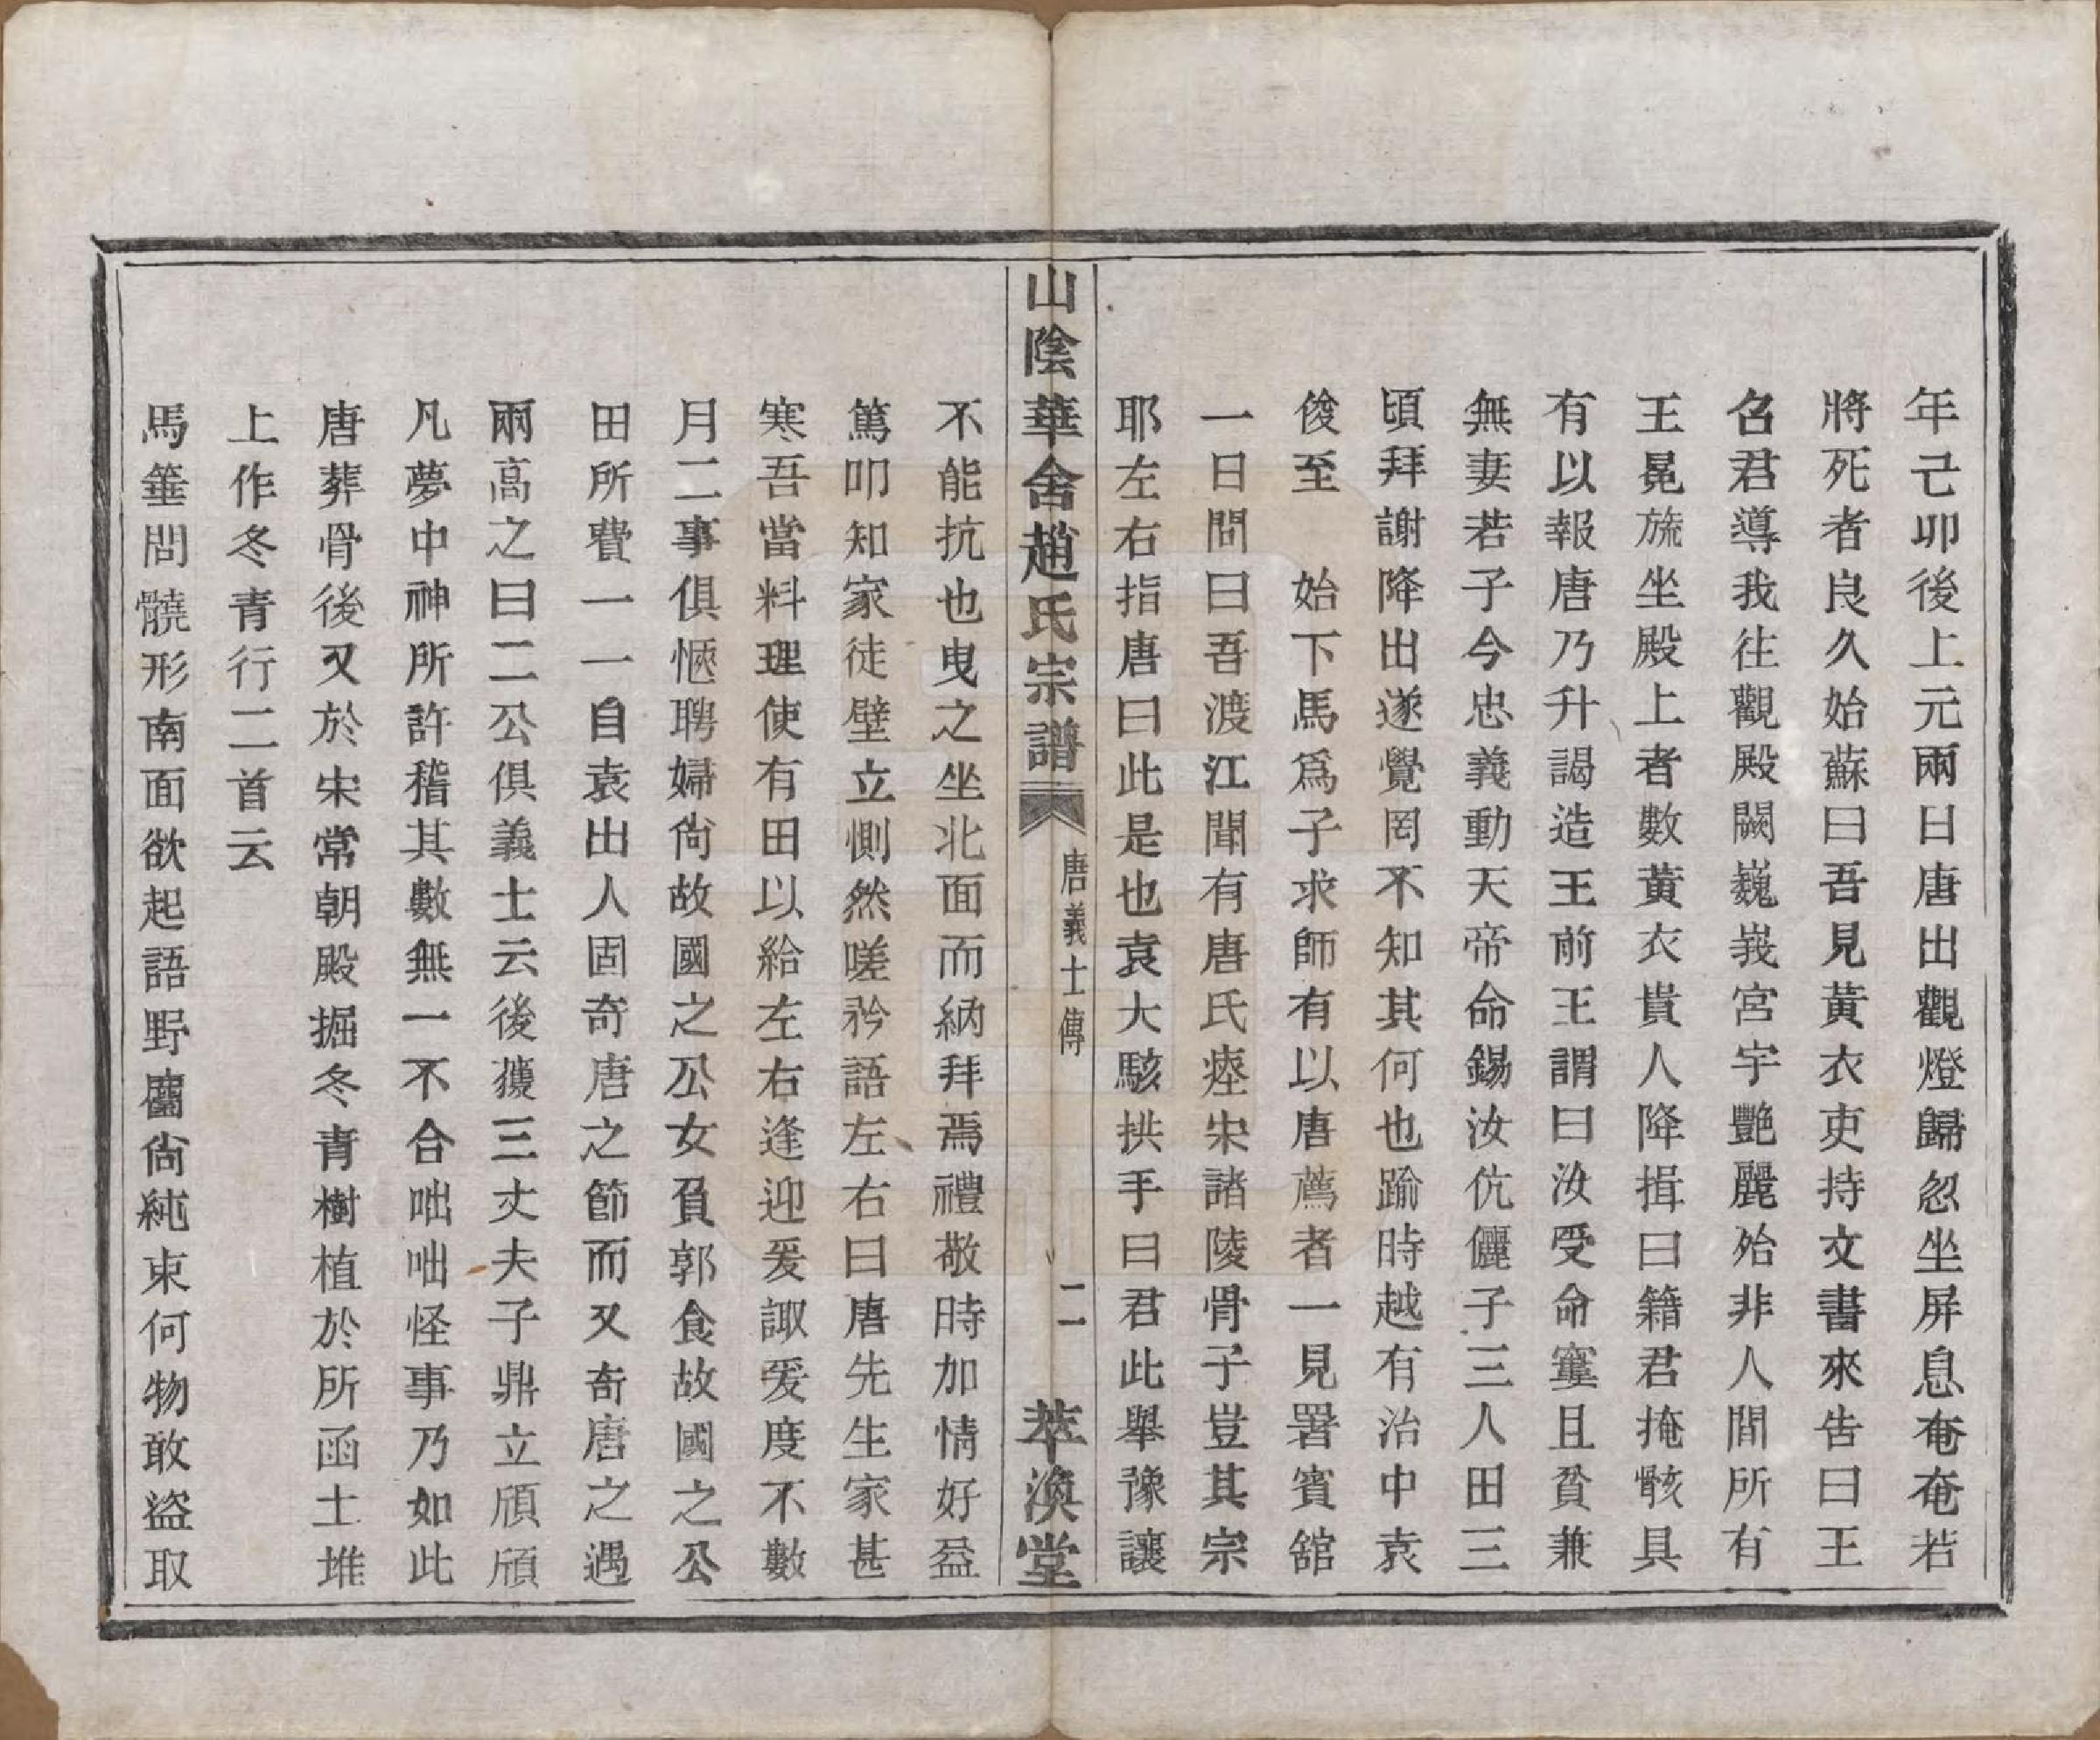 年己卯後上元兩日唐出觀燈歸忽坐屏息奄奄若
將死者良久始蘇曰吾見黃衣吏持文書來告曰王
召君導我往觀殿闕巍峩宮宇艷麗殆非人間所有
王冕旒坐殿上者數黃衣貴人降揖曰籍君掩骸具
有以報唐乃升謁造王前王謂曰汝受命窶且貧兼
無妻若子今忠義動天帝命錫汝伉儷子三人田三
頃拜謝降出遂覺罔不知其何也踰時越有治中袁
俊至　始下馬爲子求師有以唐薦者一見署賓舘
一日問曰吾渡江聞有唐氏瘞宋諸陵骨子豈其宗
耶左右指唐曰此是也袁大駭拱手曰君此舉豫讓
山陰華舍趙氏宗譜　唐義士傳　二　萃渙堂
不能抗也曳之坐北面而納拜焉禮敬時加情好益
篤叩知家徒壁立惻然嗟矜語左右曰唐先生家甚
寒吾當料理使有田以給左右逢迎爰諏爰度不數
月二事俱愜聘婦尙故國之公女負郭食故國之公
田所費一一自袁出人固奇唐之節而又奇唐之遇
兩高之曰二公俱義士云後獲三丈夫子鼎立頎頎
凡夢中神所許稽其數無一不合咄咄怪事乃如此
唐葬骨後又於宋常朝殿掘冬青樹植於所函土堆
上作冬青行二首云
馬箠問髐形南面欲起語野麕尙純束何物敢盜取